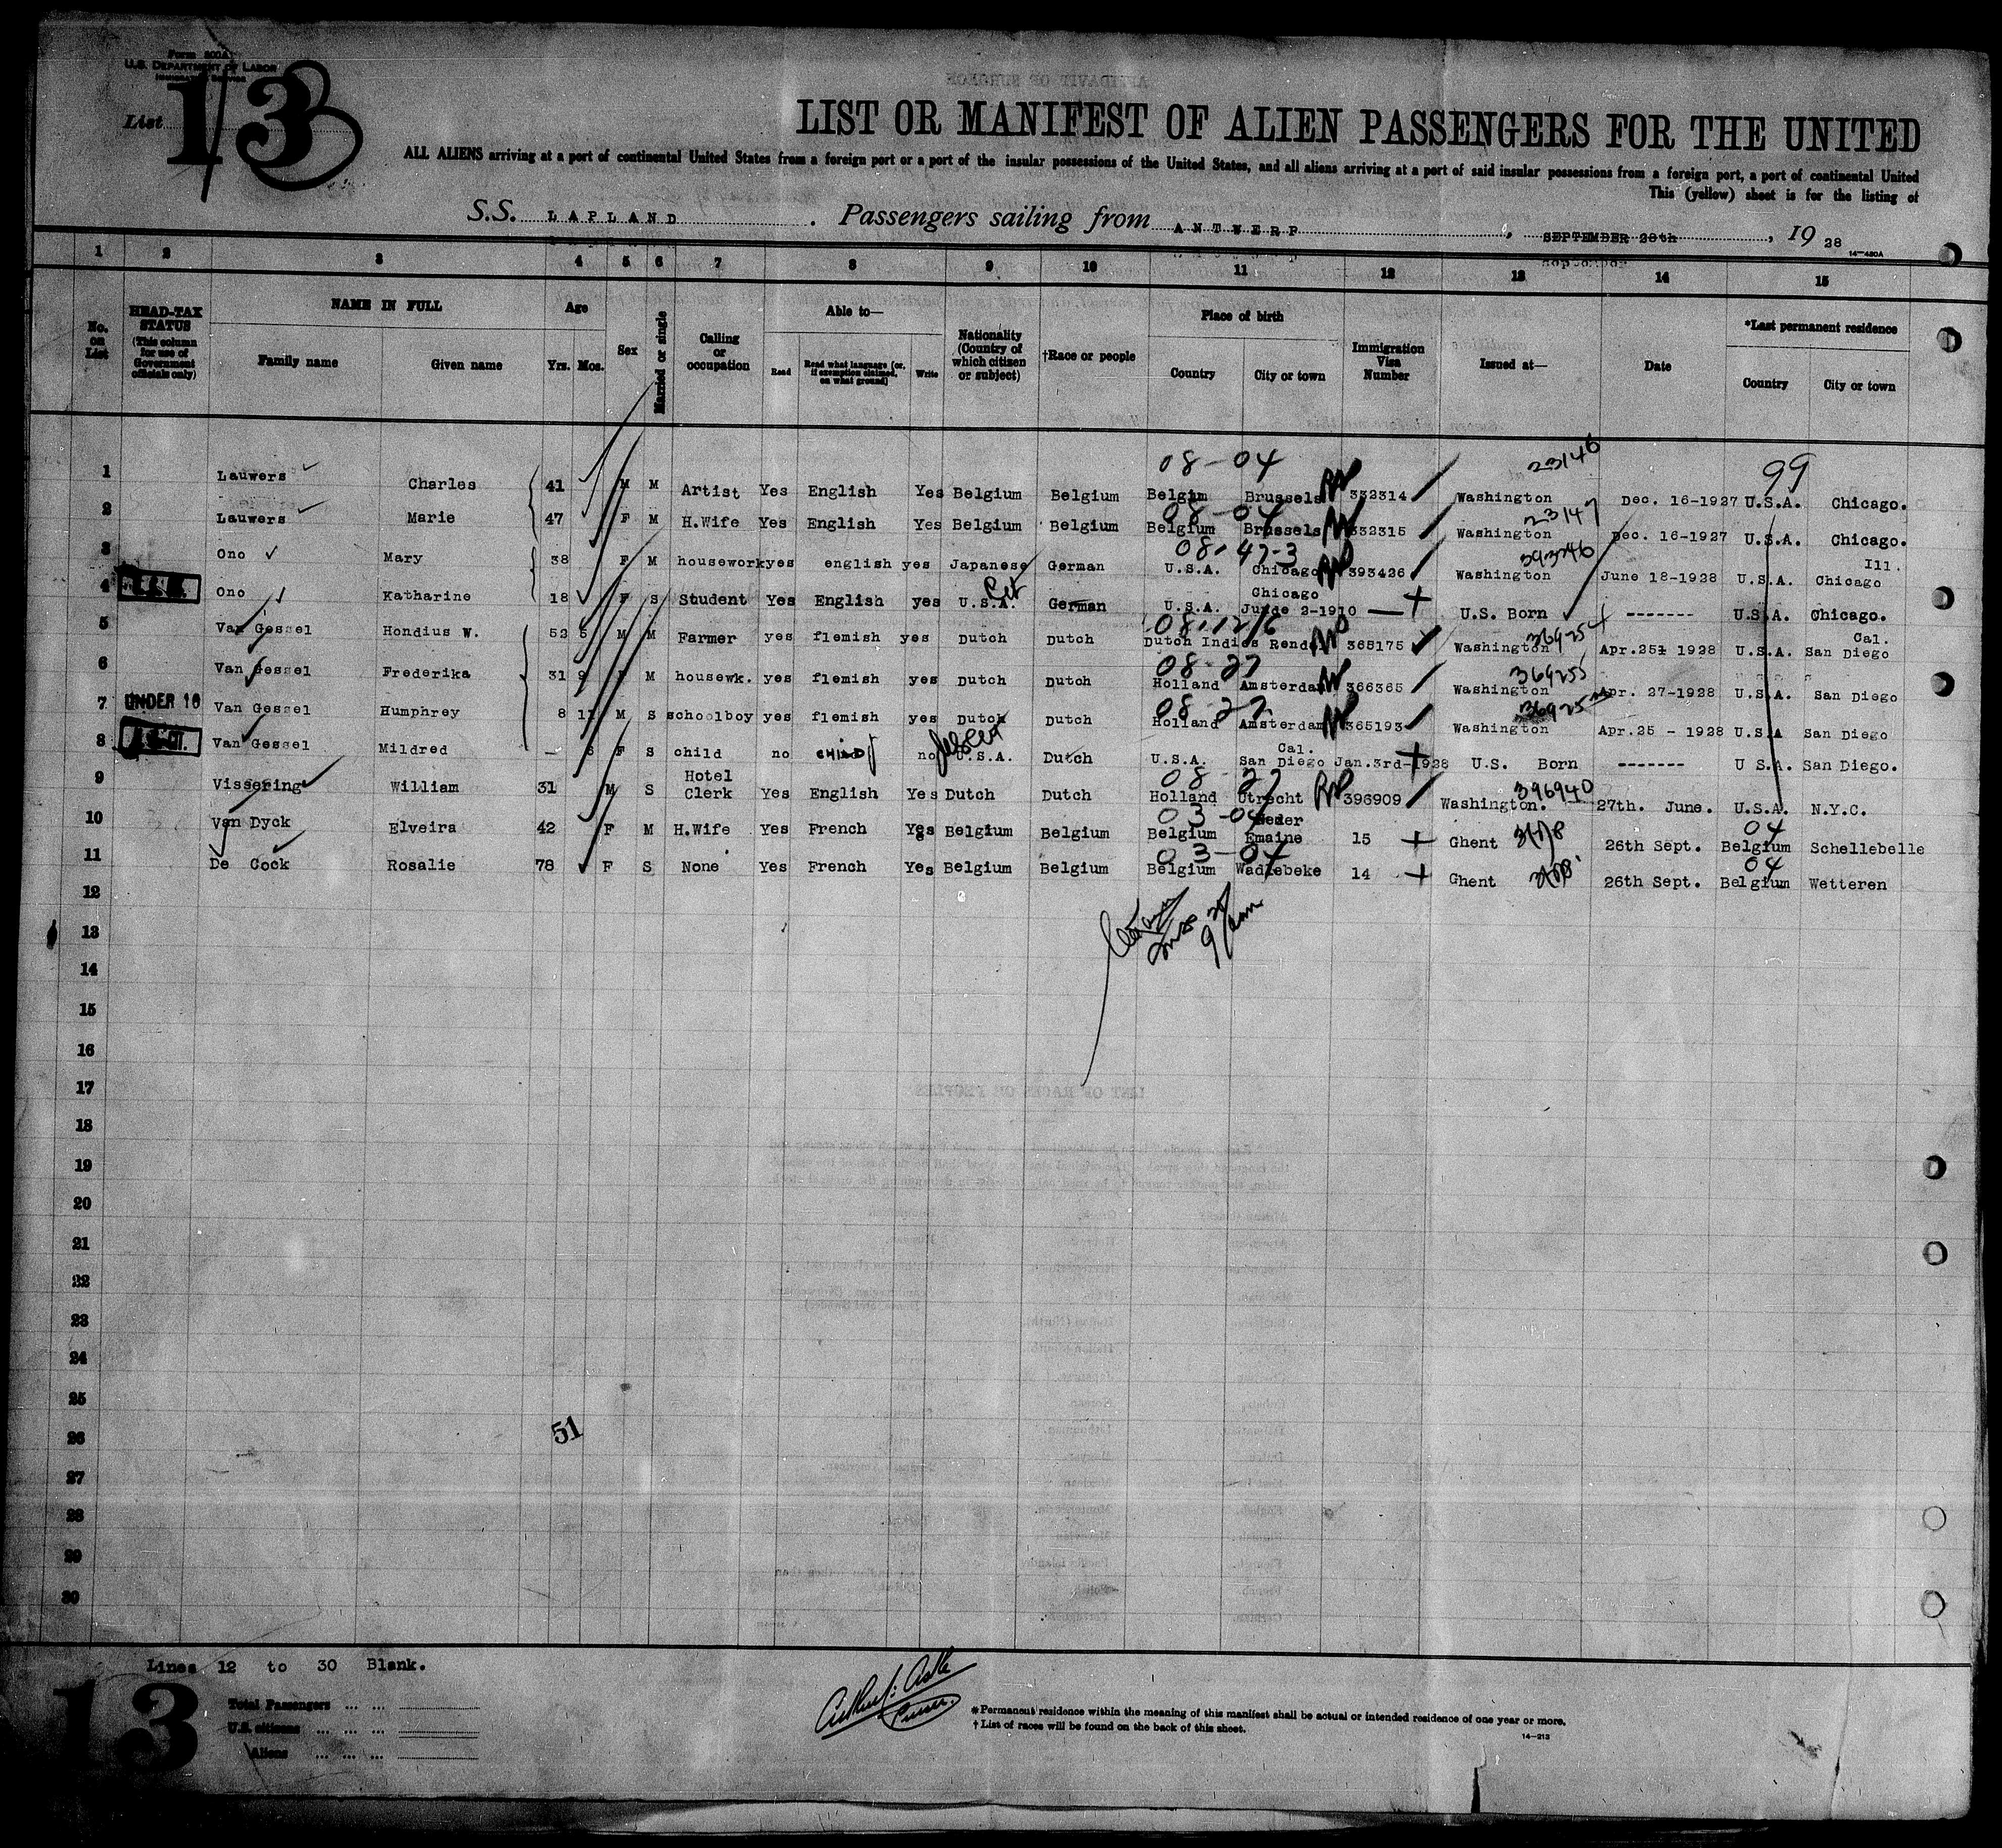 Form 500A
U.S. DEPARTMENT OF LABOR
IMMIGRATION SERVICE
List 13
LIST OR MANIFEST OF ALIEN PASSENGERS FOR THE UNITED
ALL ALIENS arriving at a port of continental United States from a foreign port or a port of the insular possessions of the United States, and all aliens arriving at a port of said insular possessions from a foreign port, a port of continental United
This (yellow) sheet is for the listing of
S.S. LAPLAND. Passengers sailing from ANTWERP, SEPTEMBER 28th, 19 28
14-480A
1 2 3 4 5 6 7 8 9 10 11 12 13 14 15
No. on List
HEAD-TAX STATUS (This column for use of Government officials only)
NAME IN FULL
Family name Given name
Age
Yrs. Mos.
Sex
Married or single
Calling or occupation
Able to—
Read Read what language (or, if exemption claimed, on what ground) Write
Nationality (Country of which citizen or subject)
†Race or people
Place of birth
Country City or town
Immigration Visa Number
Issued at—
Date
*Last permanent residence
Country City or town
08-04 23146 99
1 Lauwers Charles 41 M M Artist Yes English Yes Belgium Belgium Belgim Brussels 332314 Washington Dec. 16-1927 U.S.A. Chicago.
08-04 23147
2 Lauwers Marie 47 F M H.Wife Yes English Yes Belgium Belgium Belgium Brussels 332315 Washington Dec. 16-1927 U.S.A. Chicago.
08-47-3 Ill.
3 Ono Mary 38 F M housework yes english yes Japanese German U.S.A. Chicago 393426 Washington June 18-1928 U.S.A. Chicago
4 Ono Katharine 18 F S Student Yes English yes U.S.A. German U.S.A. Chicago Junde 2-1910 U.S. Born ------- U.S.A. Chicago.
Cal.
5 Van Gessel Hondius W. 52 5 M M Farmer yes flemish yes Dutch Dutch Dutch Indies 365175 Washington Apr. 1928 U.S.A. San Diego
08-27 369255
6 Van Gessel Frederika 31 9 F M housewk. yes flemish yes Dutch Dutch Holland Amsterdam 366365 Washington Apr. 27-1928 U.S.A. San Diego
08-27
7 UNDER 16 Van Gessel Humphrey 8 11 M S schoolboy yes flemish yes Dutch Dutch Holland Amsterdam 365193 Washington Apr.25 - 1928 U.S.A San Diego
8 Van Gessel Mildred — F S child no CHILD no U.S.A. Dutch U.S.A. Cal. San Diego Jan.3rd-1928 U.S. Born ------- U S.A. San Diego.
08-27 396940
9 Vissering William 31 M S Hotel Clerk Yes English Yes Dutch Dutch Holland Utrecht 396909 Washington. 27th. June. U.S.A. N.Y.C.
03-04 04
10 Van Dyck Elveira 42 F M H.Wife Yes French Yes Belgium Belgium Belgium Emaine 15 Ghent 26th Sept. Belgium Schellebelle
03-04 04
11 De Cock Rosalie 78 F S None Yes French Yes Belgium Belgium Belgium Wadlebeke 14 Ghent 26th Sept. Belgium Wetteren
12
13
14
15
16
17
18
19
20
21
22
23
24
25
51
26
27
28
29
30
Lines 12 to 30 Blank.
13
Total Passengers ... ...
U.S. citizens ... ... ...
Aliens ... ... ...
Purser.
*Permanent residence within the meaning of this manifest shall be actual or intended residence of one year or more.
†List of races will be found on the back of this sheet.
14-213